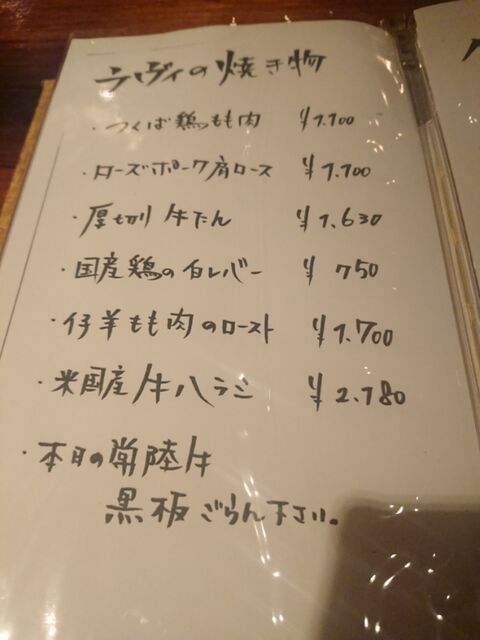 ラヴィの焼き物
・つくば鶏もも肉 ¥1.100
・ローズポーク肩ロース ¥1.100
・厚切り牛たん ¥1.630
・国産鶏の白レバー ¥750
・仔羊もも肉のロースト ¥1.700
・米国産牛ハラミ ¥2.180
・本日の常陸牛
黒板ごらん下さい。